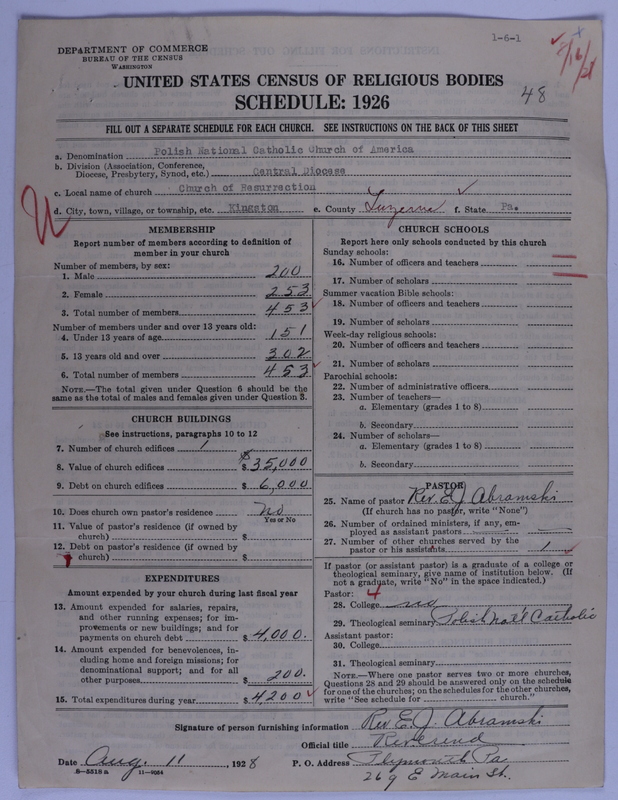 1-6-1
8/16/28
DEPARTMENT OF COMMERCE
BUREAU OF THE CENSUS
WASHINGTON
UNITED STATES CENSUS OF RELIGIOUS BODIES
SCHEDULE: 1926
48
FILL OUT A SEPARATE SCHEDULE FOR EACH CHURCH. SEE INSTRUCTIONS ON THE BACK OF THIS SHEET
a. Denomination Polish National Catholic Church of America
b. Division (Association, Conference,
Diocese, Presbytery, Synod, etc.) Central Diocese
c. Local name of church Church of Resurrection
d. City, town, village, or township, etc. Kingston e. County Luzerne f. State Pa.
MEMBERSHIP
Report number of members according to definition of
member in your church
Number of members, by sex:
1. Male 200
2. Female 253
3. Total number of members 453
Number of members under and over 13 years old:
4. Under 13 years of age 151
5. 13 years old and over 302
6. Total number of members 453
NOTE.—The total given under Question 6 should be the
same as the total of males and females given under Question 3.
CHURCH BUILDINGS
See instructions, paragraphs 10 to 12
7. Number of church edifices 1
8. Value of church edifices $ 35,000
9. Debt on church edifices $ 6,000
10. Does church own pastor's residence no
Yes or No
11. Value of pastor's residence (if owned by
church) $
12. Debt on pastor's residence (if owned by
church) $
EXPENDITURES
Amount expended by your church during last fiscal year
13. Amount expended for salaries, repairs,
and other running expenses; for im-
provements or new buildings; and for
payments on church debt $ 4,000.
14. Amount expended for benevolences, in-
cluding home and foreign missions; for
denominational support; and for all
other purposes $ 200.
15. Total expenditures during year $ 4,200
CHURCH SCHOOLS
Report here only schools conducted by this church
Sunday schools:
16. Number of officers and teachers
17. Number of scholars
Summer vacation Bible schools:
18. Number of officers and teachers
19. Number of scholars
Week-day religious schools:
20. Number of officers and teachers
21. Number of scholars
Parochial schools:
22. Number of administrative officers
23. Number of teachers—
a. Elementary (grades 1 to 8)
b. Secondary
24. Number of scholars—
a. Elementary (grades 1 to 8)
b. Secondary
PASTOR
25. Name of pastor Rev. E. J. Abramski
(If church has no pastor, write "None")
26. Number of ordained ministers, if any, em-
ployed as assistant pastors
27. Number of other churches served by the
pastor or his assistants 1
If pastor (or assistant pastor) is a graduate of a college or
theological seminary, give name of institution below. (If
not a graduate, write "No" in the space indicated.)
Pastor: 4
28. College no
29. Theological seminary Polish Nat'l Catholic
Assistant pastor:
30. College
31. Theological seminary
NOTE.—Where one pastor serves two or more churches,
Questions 28 and 29 should be answered only on the schedule
for one of the churches; on the schedules for the other churches,
write "See schedule for church."
Signature of person furnishing information Rev. E. J. Abramski
Official title Reverend
Date Aug. 11, 1928 P. O. Address Plymouth Pa.
8-5518 a 11-9054 269 E Main St.